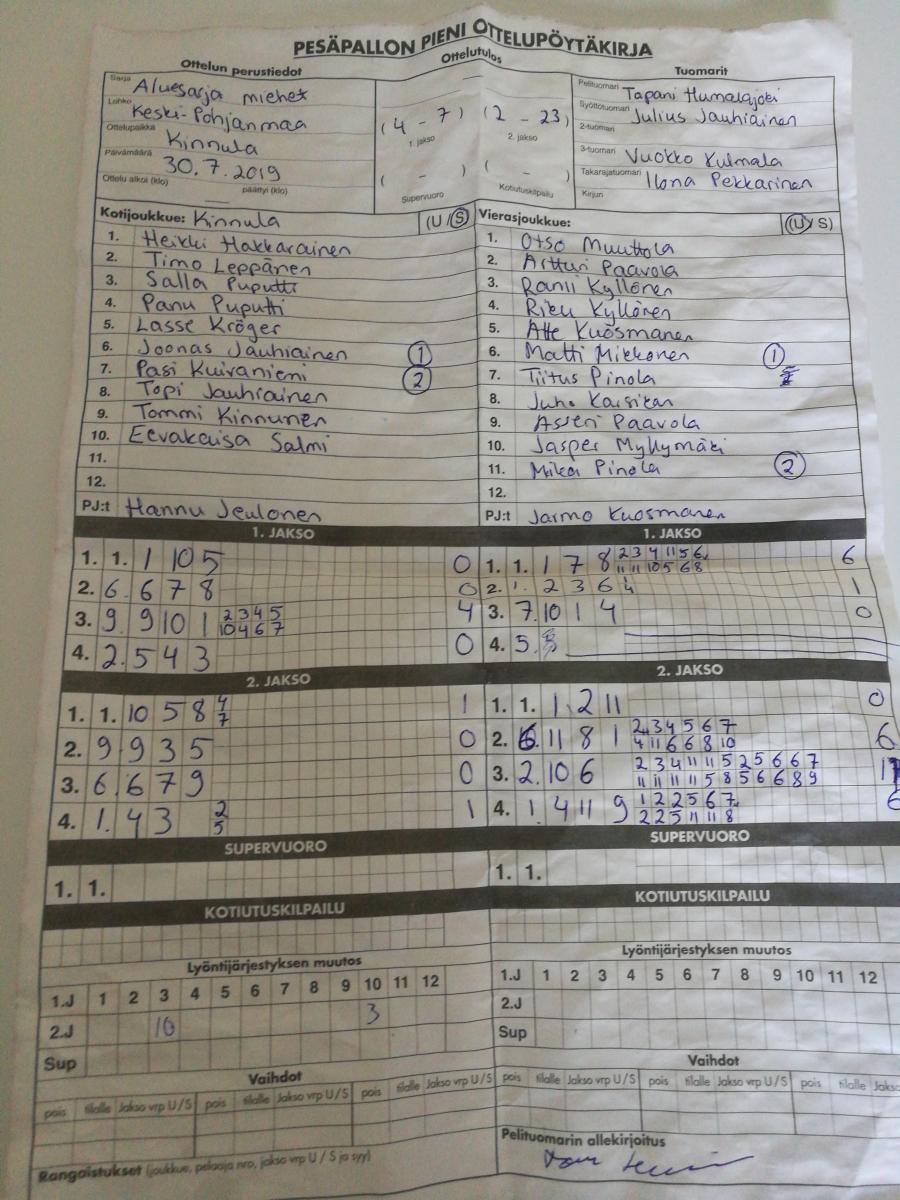 PESÄPALLON PIENI OTTELUPÖYTÄKIRJA
Ottelun perustiedot Ottelutulos Tuomarit
Sarja Aluesarja miehet
Lohko Keski-Pohjanmaa
Ottelupaikka Kinnula
Päivämäärä 30.7.2019
Ottelu alkoi (klo) päättyi (klo)
(4 - 7) (2 - 23)
1. jakso 2. jakso
( - ) ( - )
Supervuoro Kotiutuskilpailu
Pelituomari Tapani Humalajoki
Syöttötuomari Julius Jauhiainen
2-tuomari
3-tuomari Vuokko Kulmala
Takarajatuomari Ilona Pekkarinen
Kirjuri
Kotijoukkue: Kinnula (U / S)
1. Heikki Hakkarainen
2. Timo Leppänen
3. Salla Puputti
4. Panu Puputti
5. Lasse Kröger
6. Joonas Jauhiainen 1
7. Pasi Kuivaniemi 2
8. Topi Jauhiainen
9. Tommi Kinnunen
10. Eevakaisa Salmi
11.
12.
PJ:t Hannu Jeulonen
Vierasjoukkue: (U / S)
1. Otso Muuttola
2. Artturi Paavola
3. Kyllönen
4. Kyllönen
5. Atte Kuosmanen
6. Matti Mikkonen 1
7. Tiitus Pinola
8. Juho
9. Paavola
10. Jasper Myllymäki
11. Mika Pinola 2
12.
PJ:t Jarmo Kuosmanen
1. JAKSO
1. 1. 1 10 5 0
2. 6. 6 7 8 0
3. 9. 9 10 1 2 3 4 5 4
10 4 6 7
4. 2. 5 4 3 0
1. JAKSO
1. 1. 1 7 8 2 3 4 11 5 6 6
11 11 10 5 6 8
2. 1. 2 3 6 4 1
3. 7. 10 1 4 0
4. 5.
2. JAKSO
1. 1. 10 5 8 4 1
7
2. 9. 9 3 5 0
3. 6. 6 7 9 0
4. 1. 4 3 2 1
5
2. JAKSO
1. 1. 1 2 11 0
2. 6. 11 8 1 2 3 4 5 6 7 6
4 11 6 6 8 10
3. 2. 10 6 2 3 4 11 11 5 2 5 6 6 7 11
11 11 11 11 5 8 5 6 6 8 9
4. 1. 4 11 9 1 2 2 5 6 7 6
2 2 5 11 11 8
SUPERVUORO SUPERVUORO
1. 1. 1. 1.
KOTIUTUSKILPAILU KOTIUTUSKILPAILU
Lyöntijärjestyksen muutos
1.J 1 2 3 4 5 6 7 8 9 10 11 12
2.J 10 3
Sup
Lyöntijärjestyksen muutos
1.J 1 2 3 4 5 6 7 8 9 10 11 12
2.J
Sup
Vaihdot
pois tilalle Jakso vrp U / S pois tilalle Jakso vrp U / S pois tilalle Jakso vrp U / S
Vaihdot
pois tilalle Jakso vrp U / S pois tilalle Jakso vrp U / S pois tilalle Jakso
Rangaistukset (joukkue, pelaaja nro, jakso vrp U / S ja syy)
Pelituomarin allekirjoitus